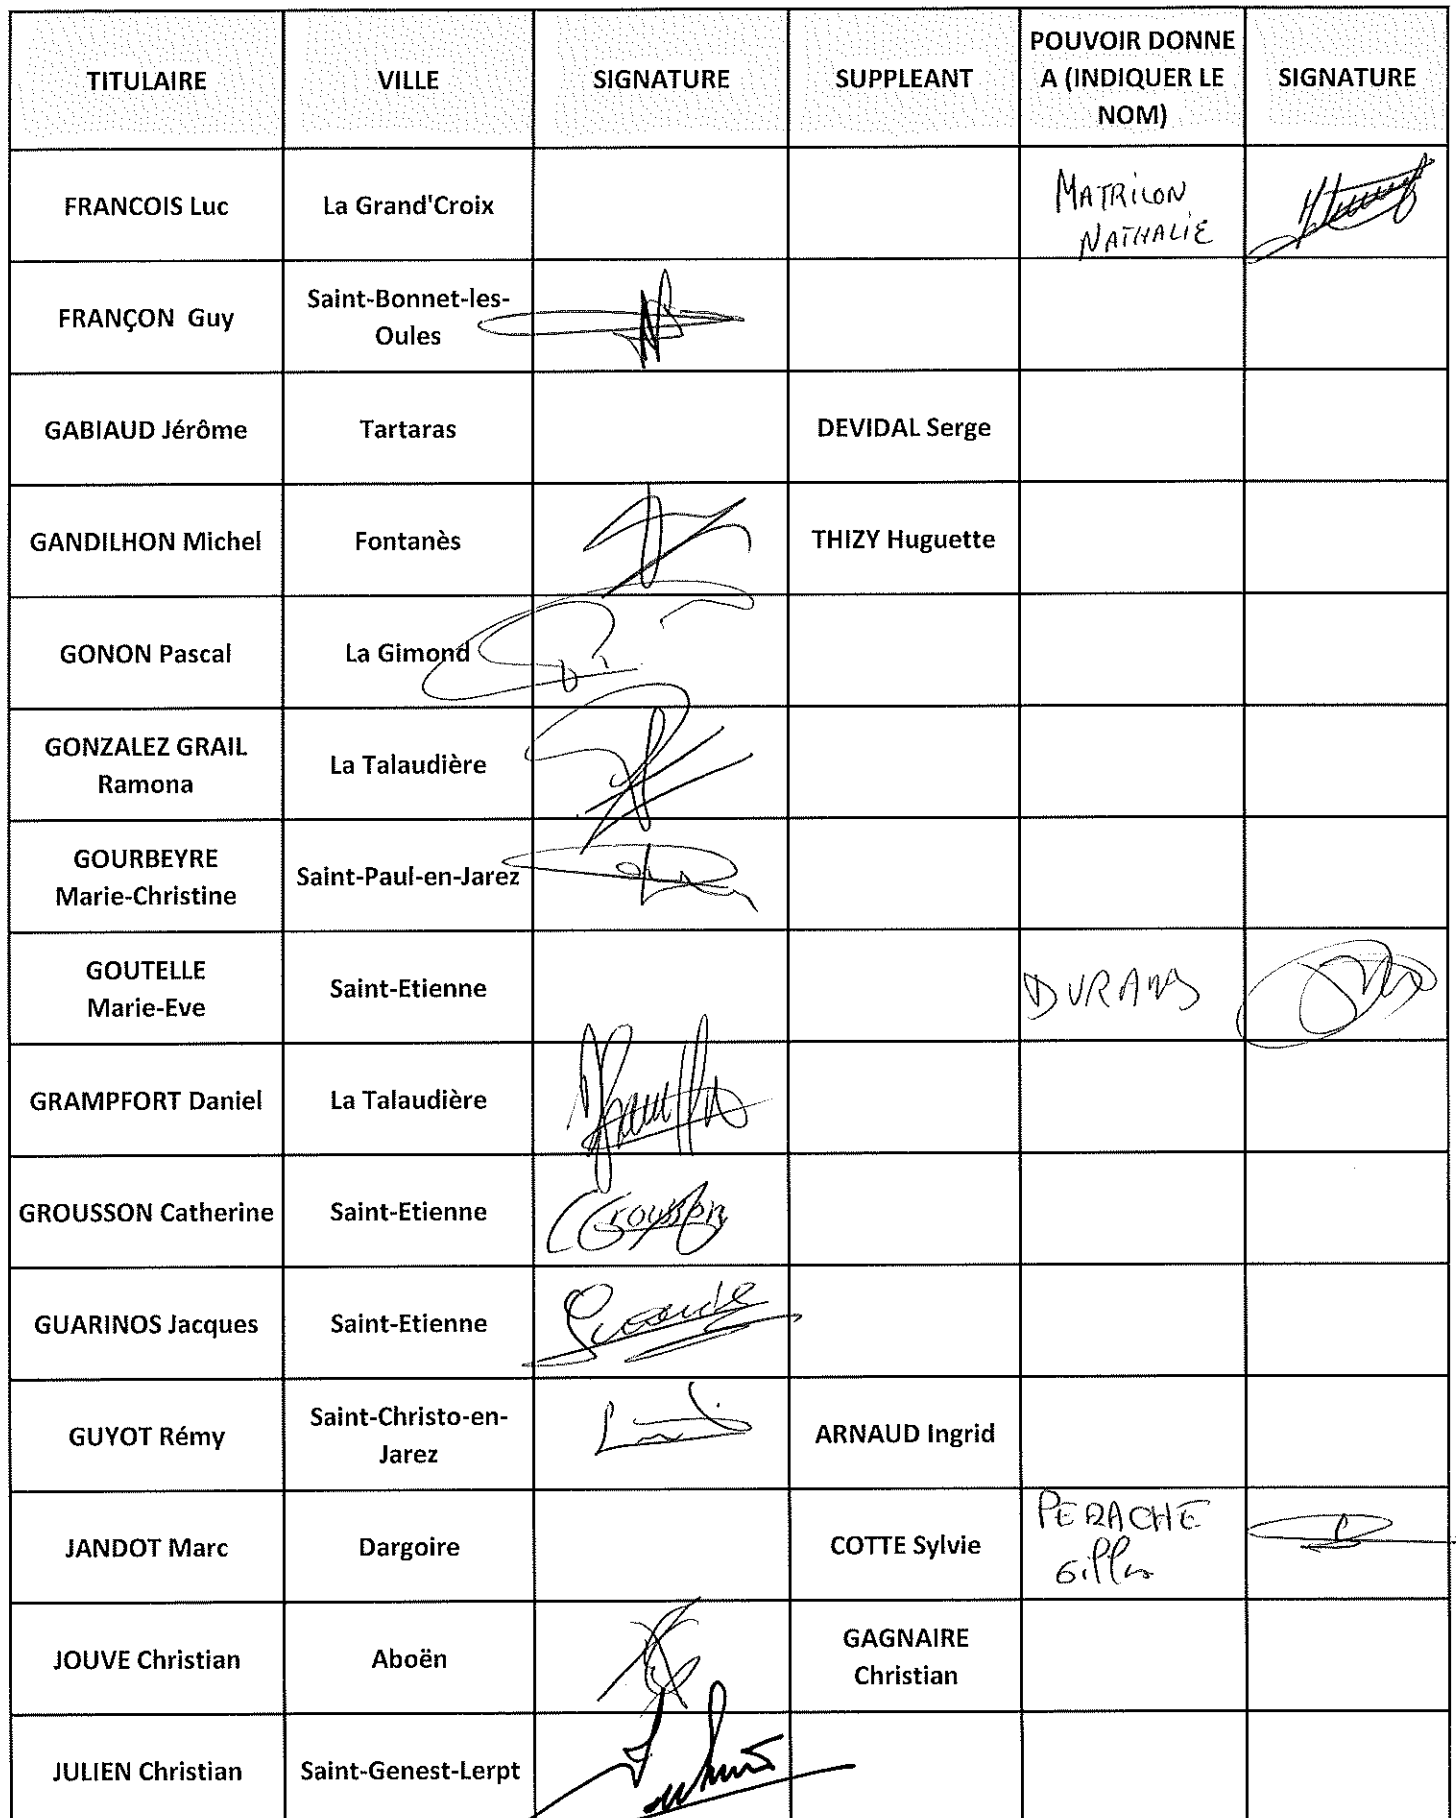 TITULAIRE
VILLE
SIGNATURE
SUPPLEANT
POUVOIR DONNE
A (INDIQUER LE
NOM)
SIGNATURE
FRANCOIS Luc
La Grand'Croix
MATRICON
NATHALIE
FRANÇON Guy
Saint-Bonnet-les-
Oules
GABIAUD Jérôme
Tartaras
DEVIDAL Serge
GANDILHON Michel
Fontanès
THIZY Huguette
GONON Pascal
La Gimond
GONZALEZ GRAIL
Ramona
La Talaudière
GOURBEYRE
Marie-Christine
Saint-Paul-en-Jarez
GOUTELLE
Marie-Eve
Saint-Etienne
GRAMPFORT Daniel
La Talaudière
GROUSSON Catherine
Saint-Etienne
Grousson
GUARINOS Jacques
Saint-Etienne
GUYOT Rémy
Saint-Christo-en-
Jarez
ARNAUD Ingrid
JANDOT Marc
Dargoire
COTTE Sylvie
PERACHE
Gilles
JOUVE Christian
Aboën
GAGNAIRE
Christian
JULIEN Christian
Saint-Genest-Lerpt